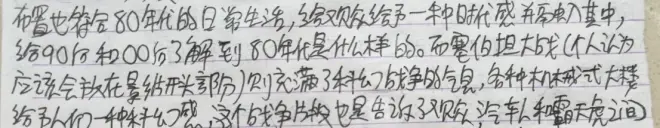 布置也符合80年代的日常生活,给观众给予一种时代感并带入其中,
给90后和00后了解到80年代是什么样的。而塞伯坦大战(个人认为
应该会放在最结开头部分)则充满了科幻战争的气息,各种机械式大楼
给予人们一种科幻感。这个战争片段也是告诉了观众汽车人和霸天虎之间